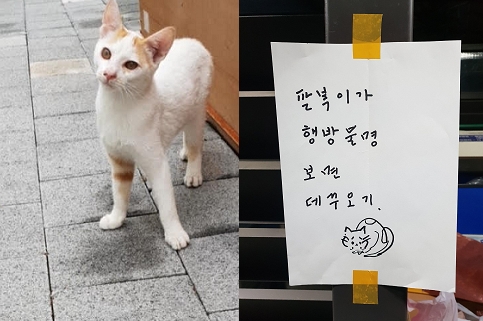 팔복이가
행방불명
보면
데꾸오기.